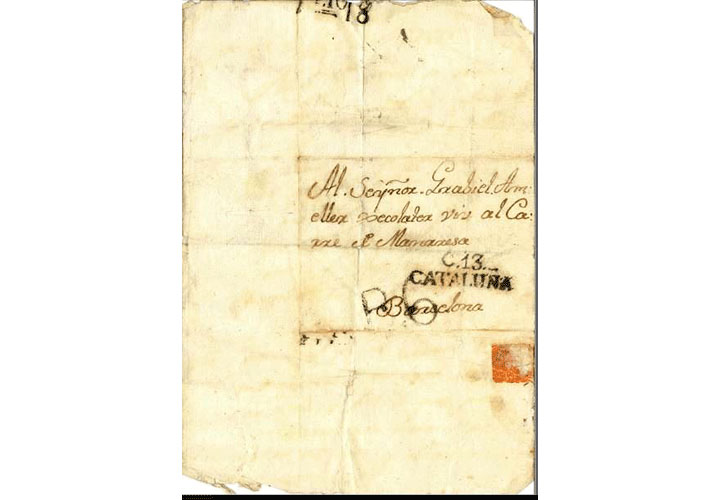 18
Al. Seyñor. Grabiel. Am=
eller xecolater viu al Ca=
rre de Manaresa
C.13.
CATALUÑA
Barselona